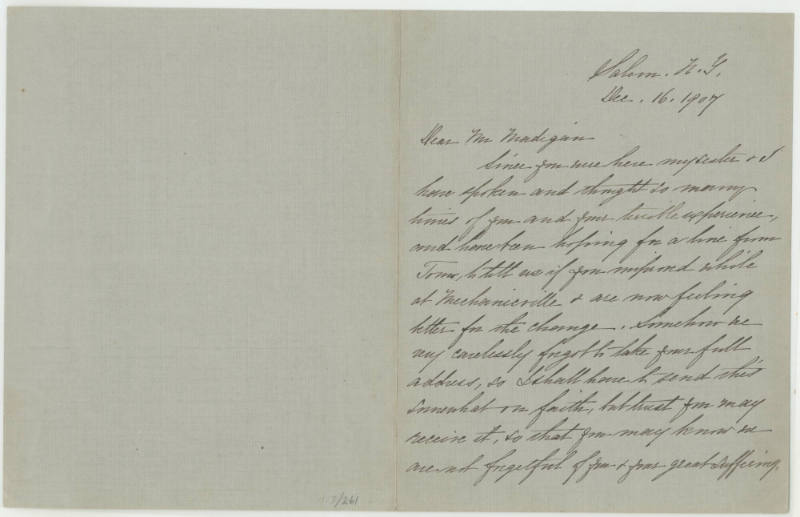 Salem. N.Y.
Dec. 16. 1907
Dear Mr Madigan
Since you were here my sister & I
have spoken and thought so many
times of you and your terrible experience,
and have been hoping for a line from
to tell us if you improved while
at Mechanicville & are now feeling
better for the change. Somehow we
very carelessly forgot to take your full
address, so I shall have to send this
somewhat on faith, but trust you may
receive it, so that you may know we
are not forgetful of you & your great suffering.
/261